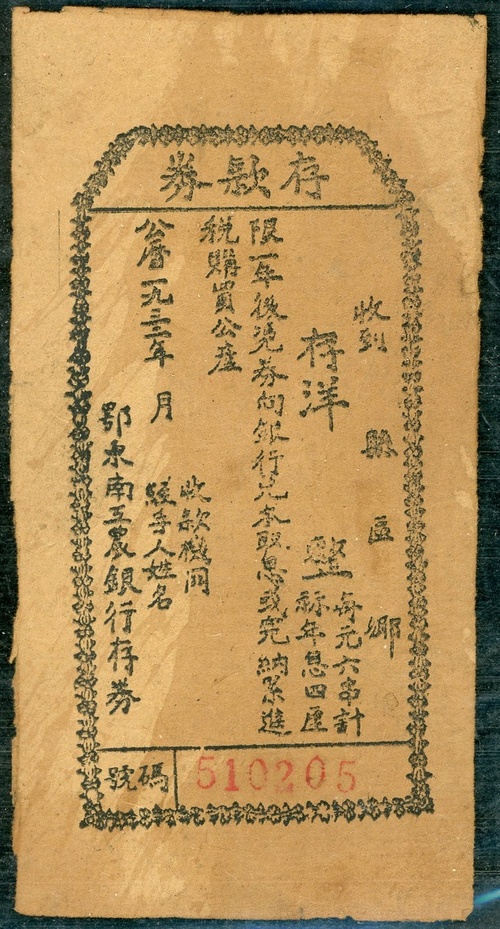 存款券
收到 縣 區 鄉
存洋 整 每元六串計
㳽年息四厘
限一年後憑券向銀行兌本取息或完納累進
稅購買公產
收款機関
經手人姓名
公曆一九三二年 月
鄂東南工農銀行存券
號碼 510205